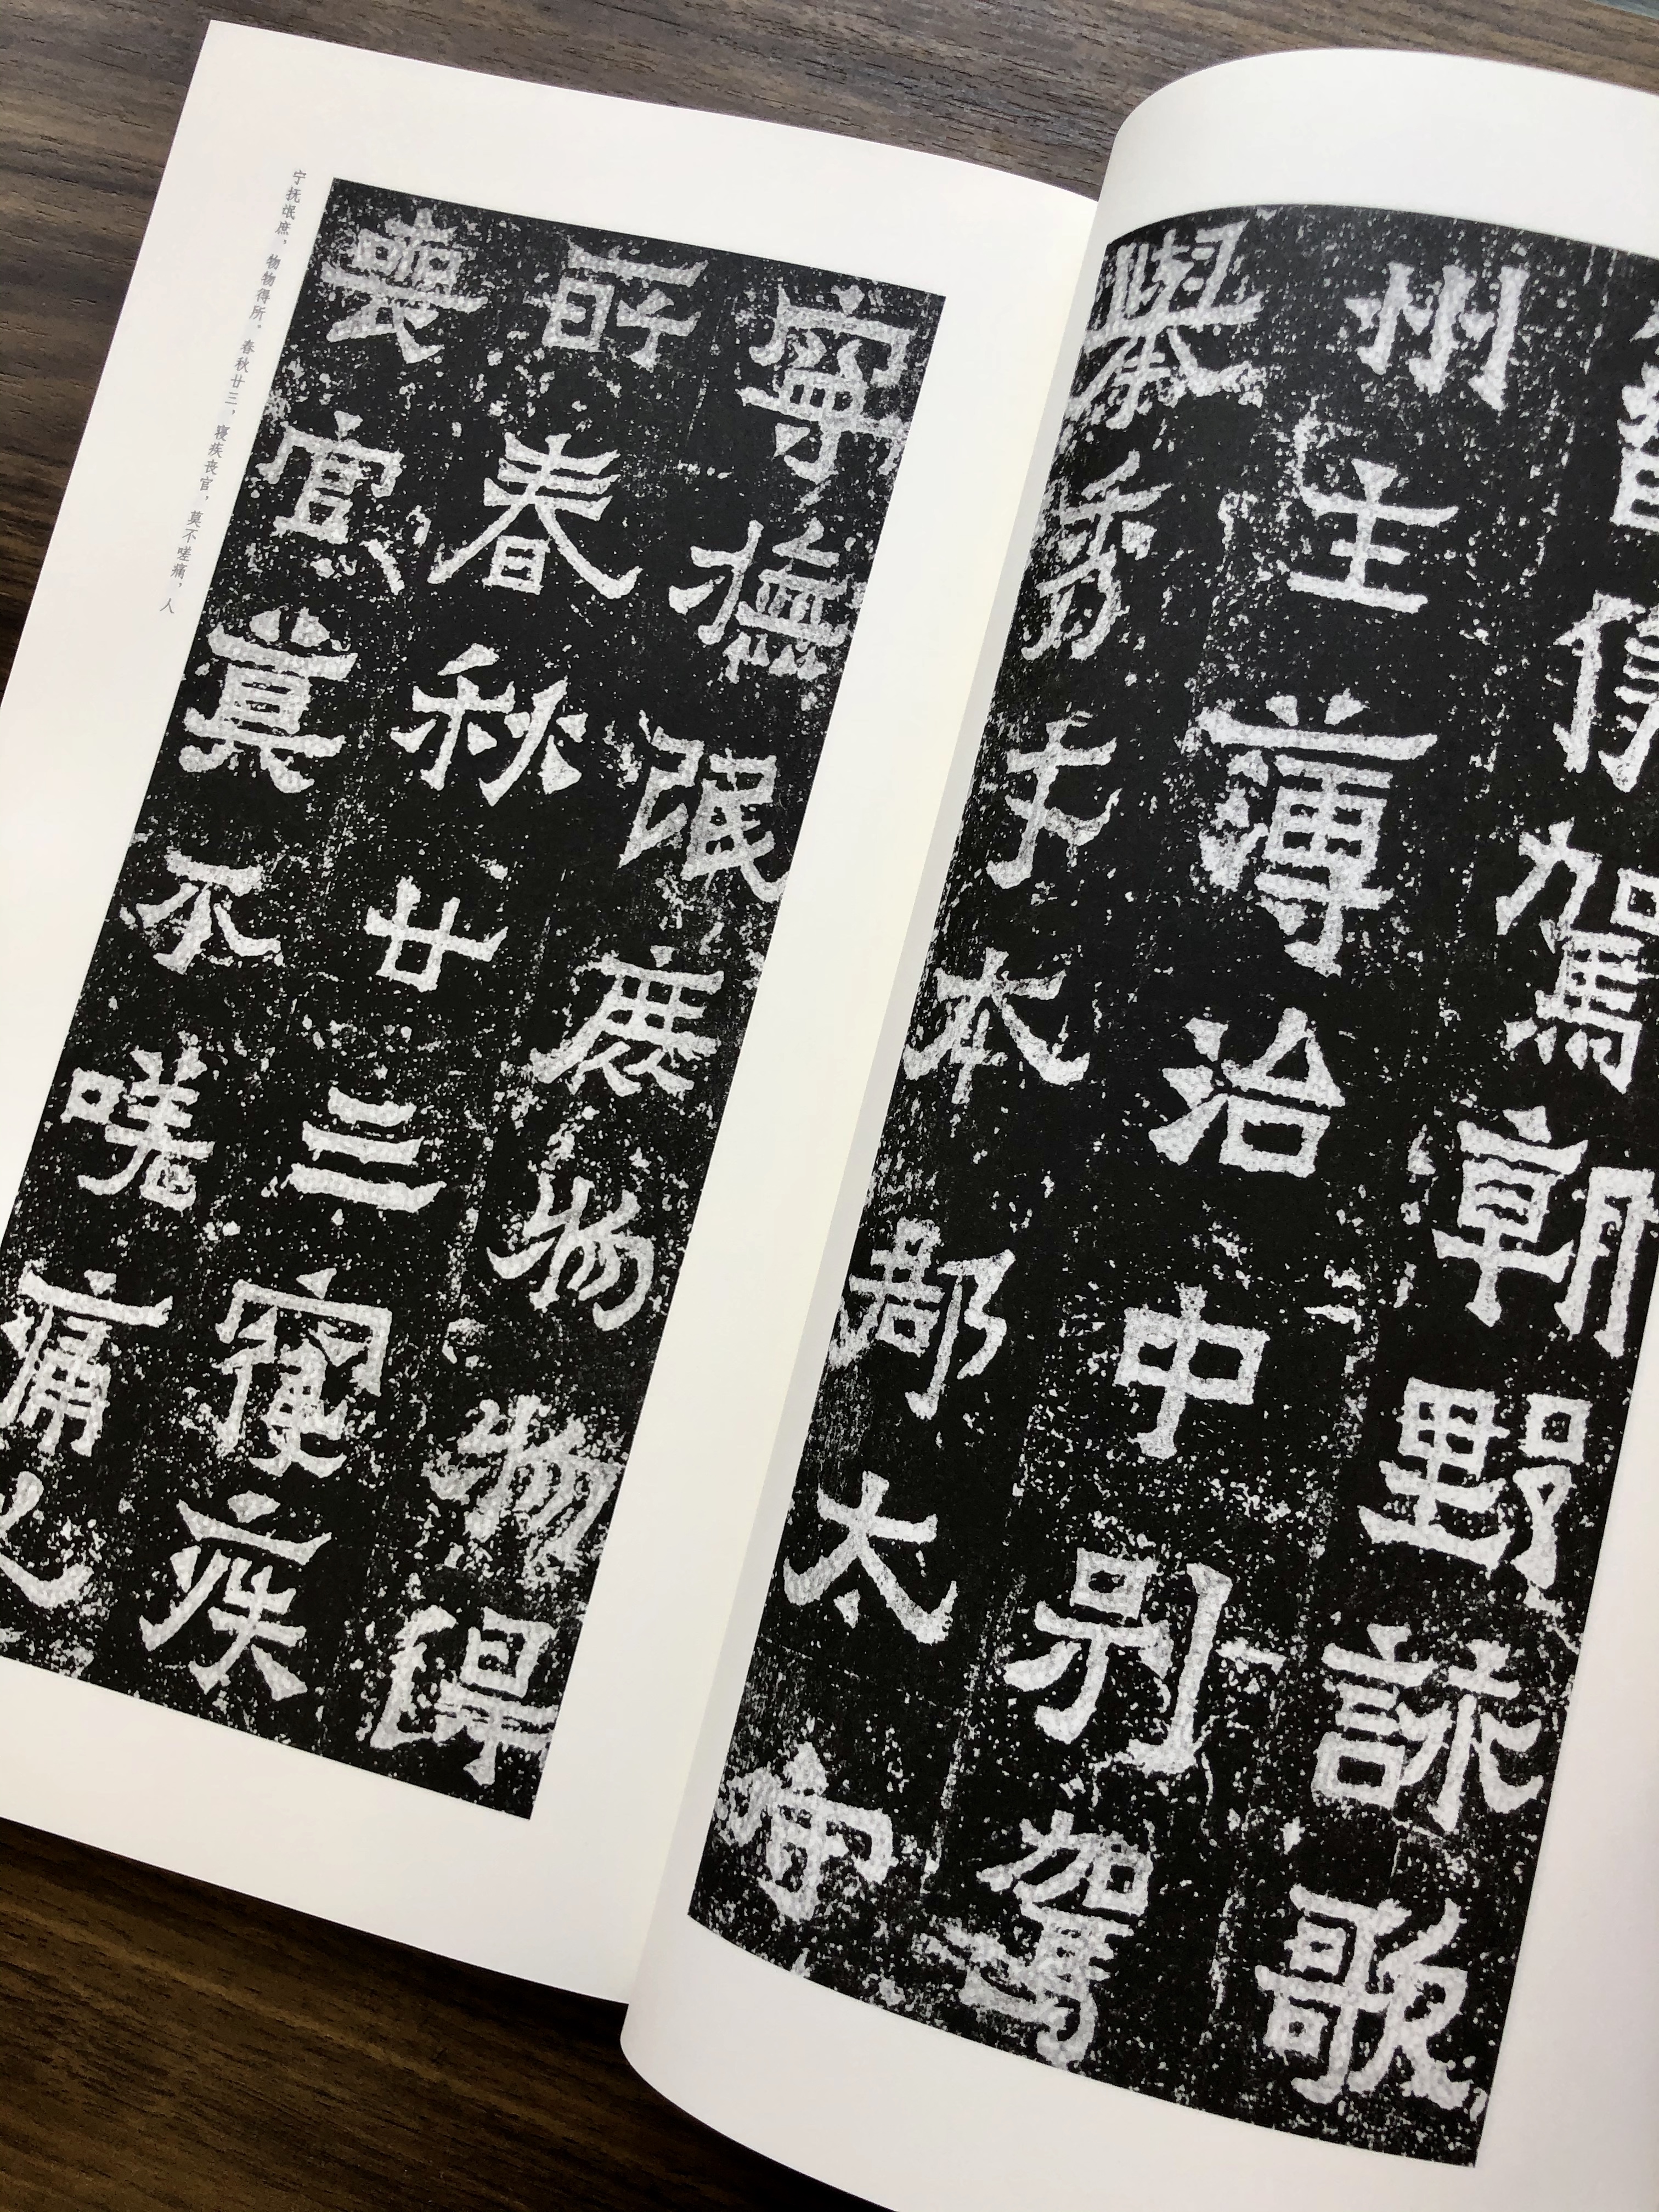 俟駕朝野詠歌
州主簿治中別駕
舉秀才本郡太守
寧撫氓庶物物得
所春秋廿三寢疾
喪官莫不嗟痛人
宁抚氓庶，物物得所。春秋廿三，寝疾丧官，莫不嗟痛，人